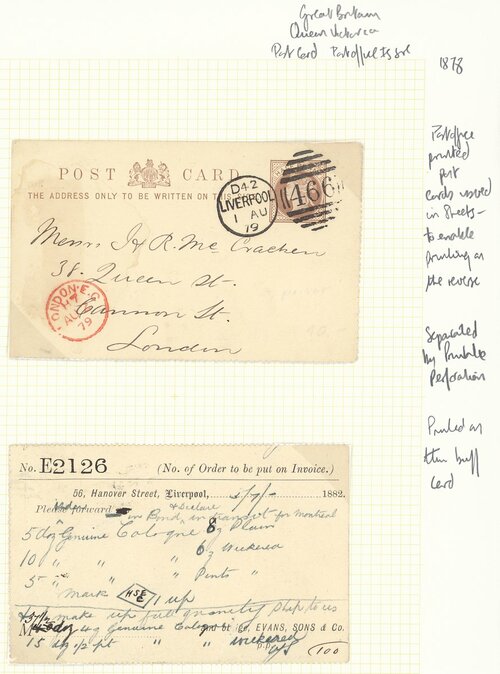 Great Britain
Queen Victoria
Post Card Post office Issue
1878
Post office
printed
post
cards issued
in sheets -
to enable
printing on
the reverse
Separated
by Private
Perforation
Printed on
thin buff
Card
POST CARD
THE ADDRESS ONLY TO BE WRITTEN ON
D42
LIVERPOOL
1 AU
79
466
Messrs J & R. Mc Cracken
38. Queen St.
Cannon St.
London
LONDON·E.C
AU
79
No. E2126 (No. of Order to be put on Invoice.)
56, Hanover Street, Liverpool, 1882.
& Declare
Please forward in Bond, in transit for Montreal
5 dz Genuine Cologne 8 oz Plain
10 " " " 6 oz Wickered
5 " " " Pints "
Mark HSE C 1 up
make up full quantity ship to us
4 oz Genuine Cologne EVANS, SONS & Co.
15 dz 1/2 pt " " Wickered
100